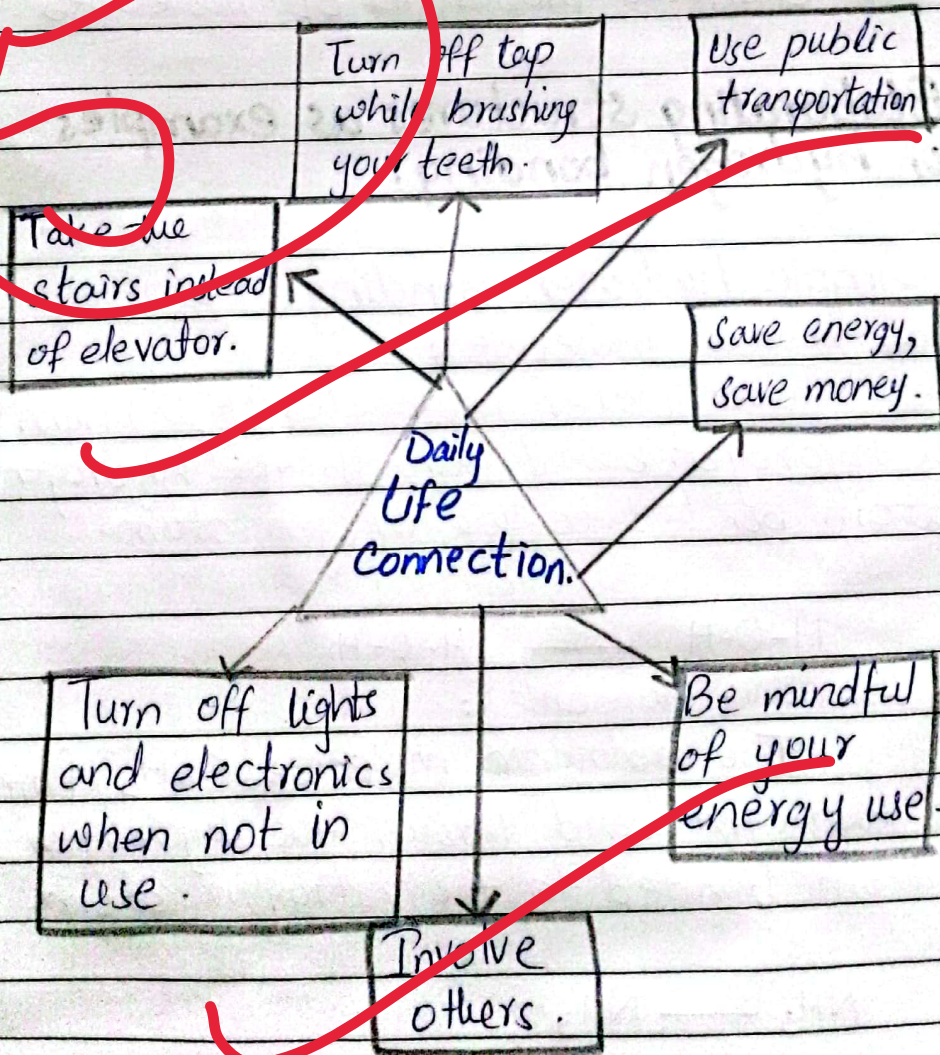 Turn off tap
while brushing
your teeth.
Use public
transportation
Take the
stairs instead
of elevator.
Save energy,
save money.
Daily
Life
Connection.
Turn off lights
and electronics
when not in
use.
Be mindful
of your
energy use.
Involve
others.